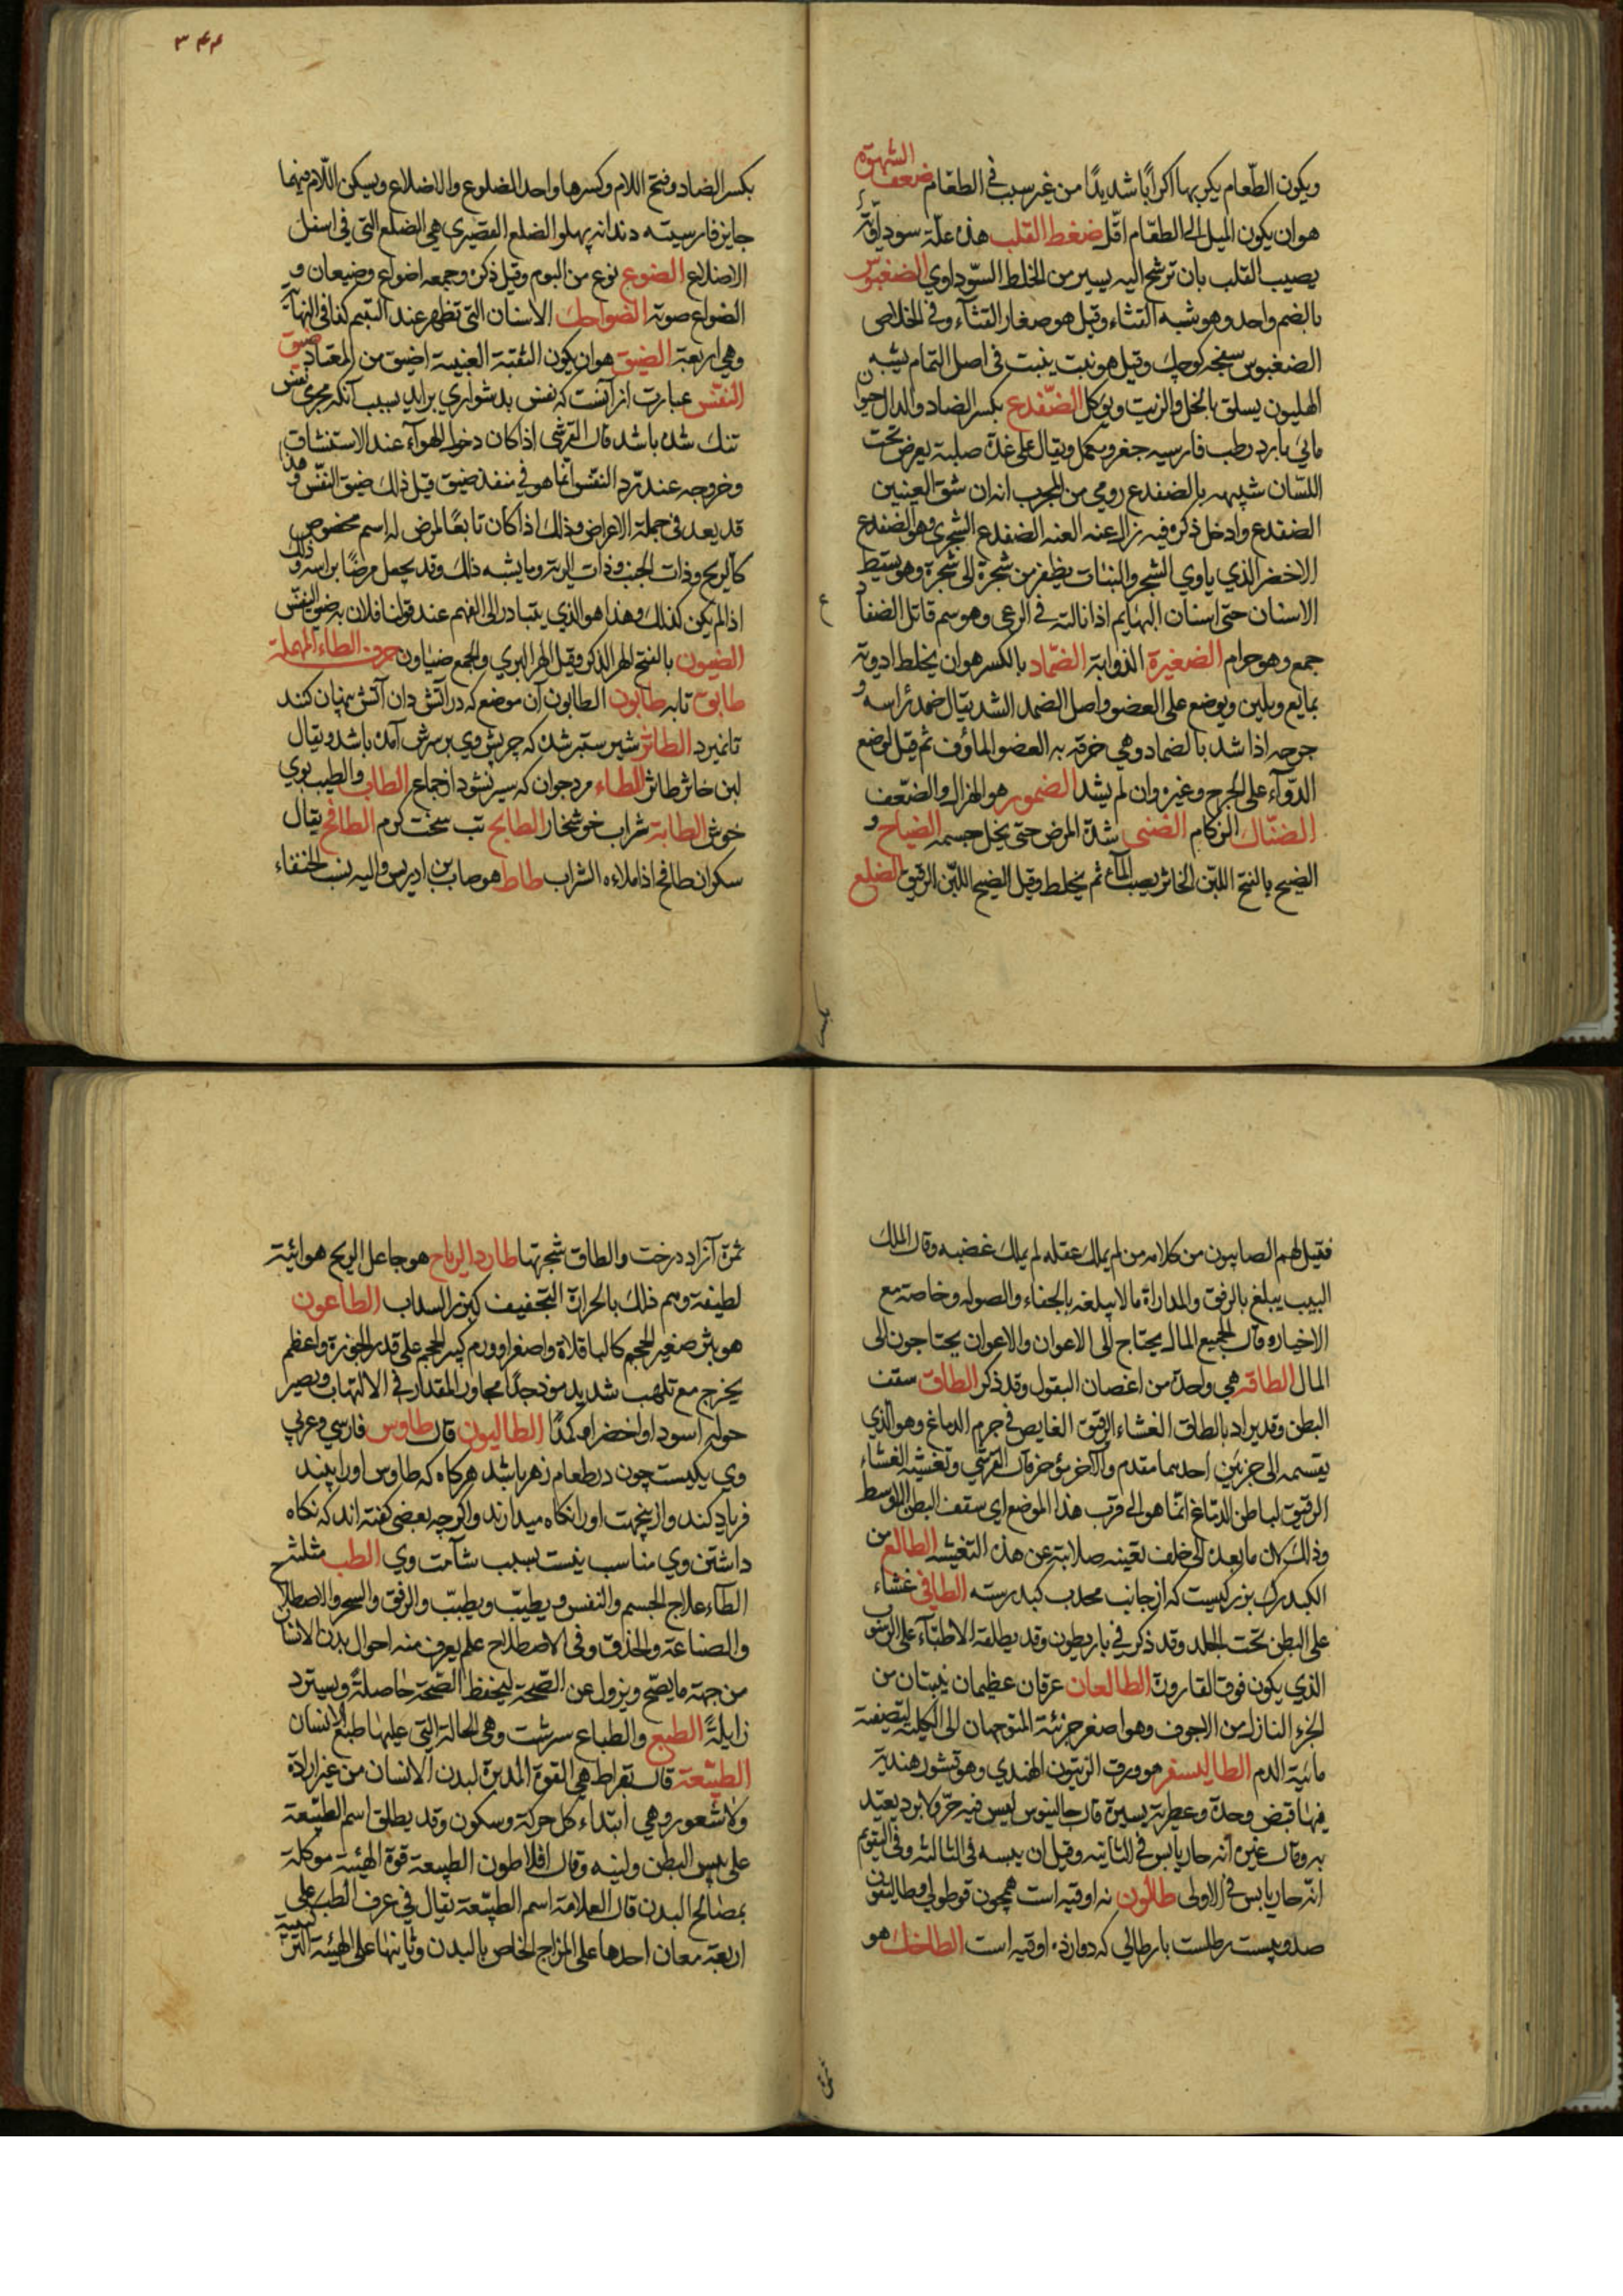 ويكون الطعام يكربها اكرابا شديدا من غير سبب في الطعام ضعف الشهوة
هو ان يكون الميل الى الطعام اقل ضغط القلب هذه علة سوداوية
يصيب القلب بان ترشح اليه يسير من الخلط السوداوي الضغبوس
بالضم واحد وهو شبه القثاء وقيل هو صغار القثاء وفي الخلاص
الضغبوس سفجه كوچك وقيل هو نبت ينبت في اصل الثمام يشبه
الهليون يسلق بالخل والزيت ويوكل الضفدع بكسر الضاد والدال حيوان
مايي بارد رطب فارسيه جغز ويقال على غدة صلبة يعرض تحت
اللسان شبيهه بالضفدع رومي من المجرب انه ان شق العينين
الضفدع وادخل ذكره فيه زال عنه العنه الضفدع الشجري وهو الضفدع
الاخضر الذي ياوي الشجر والنبات يظفر من شجرة الى شجرة وهو يسقط
الاسنان حتى اسنان البهايم اذا نالته في الرعي وهو سم قاتل الضفادع
جمع وهو حرام الضغيرة الذوابة الضماد بالكسر هو ان يخلط ادوية
بمايع ويلين ويوضع على العضو واصل الضمد الشد يقال ضمد رأسه و
جرحه اذا شد بالضماد وهي خرقة به العضو المأوف ثم قيل لوضع
الدواء على الجرح وغيره وان لم يشد الضمور هو الهزال والضعف
الضناك الزكام الضنى شدة المرض حتى يخل جسمه الضياح و
الضيح بالفتح اللبن الخاثر يصب الماء ثم يخلط وقيل الضيح اللبن الرقيق الضلع
٣٤٤
بكسر الضاد وفتح اللام وكسرها واحد الضلوع والاضلاع ويسكن اللام فيهما
جايز فارسيته دندانه پهلو الضلع القصيرى هي الضلع التي في اسفل
الاضلاع الضوع نوع من البوم وقيل ذكره وجمعه اضواع وضيعان و
الضواع صوته الضواحك الاسنان التي تظهر عند التبسم كذا في النهاية
وهي اربعة الضيق هو ان يكون الثقبة العنبية اضيق من المعتاد ضيق
النفس عبارت از آنست كه نفس بدشواري برايد بسبب آنكه مجرى نفس
تنك شده باشد قال القرشي اذا كان دخول الهواء عند الاستنشاق
وخروجه عند رد النفس انما هو في منفذ ضيق قيل ذلك ضيق النفس وهذا
قد يعد في جملة الاعراض وذلك اذا كان تابعا لمرض له اسم مخصوص
كالربو وذات الجنب وذات الرية وما يشبه ذلك وقد يجعل مرضا براسه وذلك
اذا لم يكن كذلك وهذا هو الذي يتبادر الى الفهم عند قولنا فلان به ضيق النفس
الضيون بالفتح الهر الذكر وقيل الهر البري والجمع ضياون حرف الطاء المهملة
طابق تابه طابون الطابون آن موضع كه در آتش دان آتش پنهان كنند
تا نميرد الطاثر شير ستبر شده كه چربش وي بر سرش آمده باشد ويقال
لبن خاثر طاثر الطاء مرد جوان كه سير نشود از جماع الطاب والطيب بوي
خوش الطابة شراب خوشخار الطابخ تب سخت كرم الطافح يقال
سكران طافح اذا ملاءه الشراب طاط هو صاب بن ادريس واليه ينسب الحنفاء
فقيل لهم الصابيون من كلامه من لم يملك عقله لم يملك غضبه وقال الملك
البيب يبلغ بالرفق والمداراة ما لا يبلغه بالجفاء والصوله وخاصة مع
الاخيار وقال الجميع المال يحتاج الى الاعوان والاعوان يحتاجون الى
المال الطاقه هي واحدة من اغصان البقول وقد ذكر الطاق سقف
البطن وقد يراد بالطاق الغشاء الرقيق الغايص في جرم الدماغ وهو الذي
يقسمه الى جزئين احدهما مقدم والآخر مؤخر قال القرشي وتغشيه الغشاء
الرقيق لباطن الدماغ انما هو الى قرب هذا الموضع اي سقف البطن الاوسط
وذلك لان ما بعده الى خلف تغنيه صلابته عن هذه التغشيه الطالع من
الكبد رك بزركيست كه از جانب محدب كبد رسته الطافي غشاء
على البطن تحت الجلد وقد ذكر في باريطون وقد يطلقه الاطباء على الرسوب
الذي يكون فوق القارورة الطالعان عرقان عظيمان ينبتان من
الجزء النازل من الاجوف وهو اصغر جزئية المتوجهان الى الكلية لتصفية
مائية الدم الطاليسفر هو ورق الزيتون الهندي وهو قشور هندية
فيها قبض وحدة وعطرية يسيرة قال جالينوس ليس فيه حر ولا برد يعتد
به وقال غيره انه حار يابس في الثانيه وقيل ان يبسه في الثالثه وفي التقويم
انه حار يابس في الاولى طالون نه اوقيه است همچون قوطولي وطاليقون
صد وبيست رطلست بارطالي كه دوازده اوقيه است الطلخك هو
ثمرة آزاد درخت والطاق شجرتها طارد الرياح هو جاعل الريح هوائية
لطيفة وهم ذلك بالحرارة التجفيف كبزر السداب الطاعون
هو بثر صغير الحجم كالباقلاة واصغر او ورم كبير الحجم على قدر الجوزة واعظم
يخرج مع تلهب شديد موذ جدا مجاوز المقدار في الالتهاب ويصير
حوله اسود او اخضر او كمدا الطاليون قال طاوس فارسي وعربي
وي يكيست چون در طعام زهر باشد هركاه كه طاوس او را بيند
فرياد كند وازينجهت او را نكاه ميدارند واكرچه بعضى كفته اند كه نكاه
داشتن وي مناسب نيست بسبب شآمت وي الطب مثلث
الطاء علاج الجسم والنفس ويطيب ويطبب والرفق والسحر والاصطلاح
والصناعة والحذق وفي الاصطلاح علم يعرف منه احوال بدن الانسان
من جهة ما يصح ويزول عن الصحة ليحفظ الصحة حاصلة ويسترد
زايلة الطبع والطباع سرشت وهي الحالة التي عليها طبع الانسان
الطبيعة قال بقراط هي القوة المدبرة لبدن الانسان من غير ارادة
ولا شعور وهي ابتداء كل حركة وسكون وقد يطلق اسم الطبيعة
على يبس البطن ولينه وقال افلاطون الطبيعة قوة الهيئة موكلة
بمصالح البدن قال العلامة اسم الطبيعة يقال في عرف الطب على
اربعة معان احدها على المزاج الخاص بالبدن وثانيها على الهيئة التركيبية